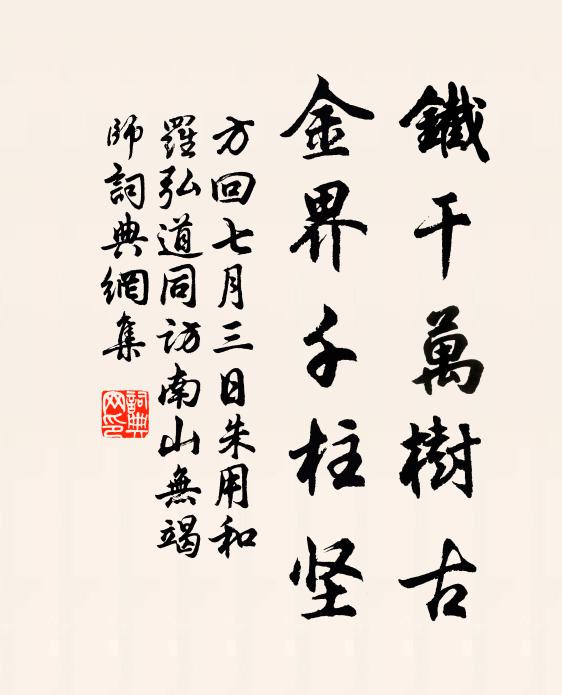 鐵干萬樹古
金界千柱坚
方回七月三日朱用和
羅弘道同访南山無竭
師詞典網集
詞典
网印